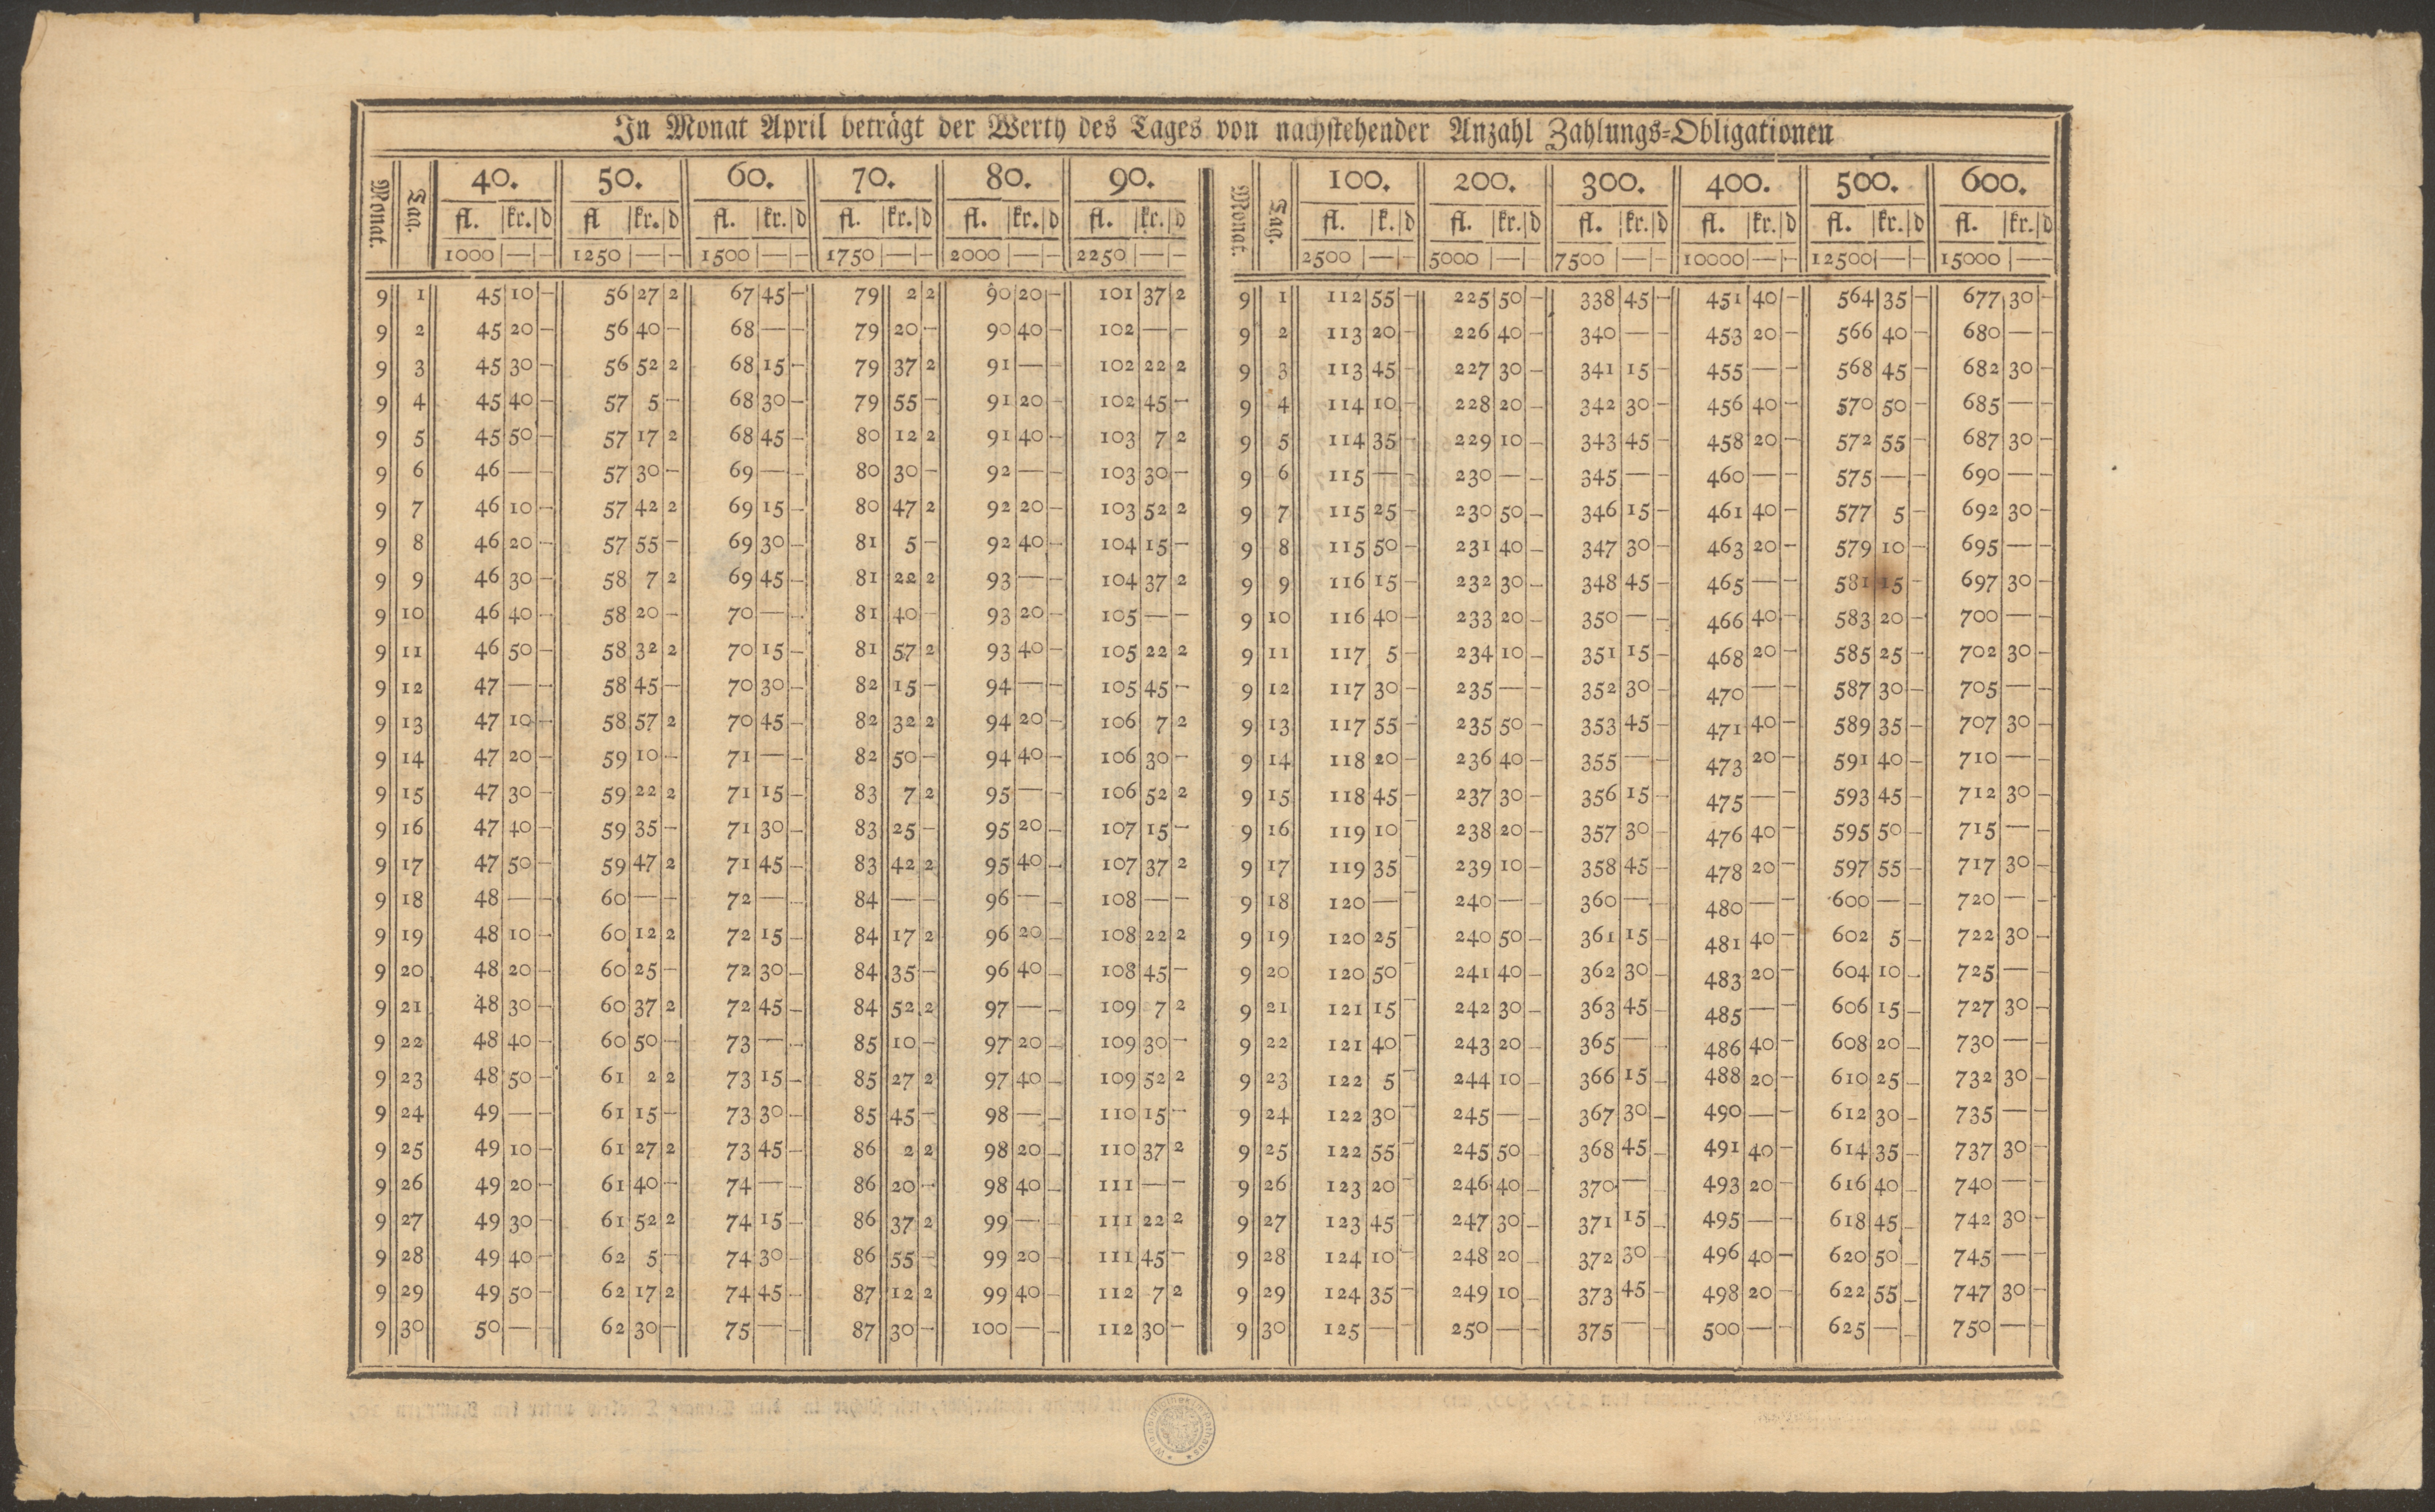 In Monat April beträgt der Werth des Tages von nachstehender Anzahl Zahlungs=Obligationen
Monat. Tag. 40. 50. 60. 70. 80. 90.
fl. kr. d fl kr. d fl. kr. d fl. kr. d fl. kr. d fl. kr. d
1000 — — 1250 — — 1500 — — 1750 — — 2000 — — 2250 — —
9 1 45 10 — 56 27 2 67 45 — 79 2 2 90 20 — 101 37 2
9 2 45 20 — 56 40 — 68 — — 79 20 — 90 40 — 102 — —
9 3 45 30 — 56 52 2 68 15 — 79 37 2 91 — — 102 22 2
9 4 45 40 — 57 5 — 68 30 — 79 55 — 91 20 — 102 45 —
9 5 45 50 — 57 17 2 68 45 — 80 12 2 91 40 — 103 7 2
9 6 46 — — 57 30 — 69 — — 80 30 — 92 — — 103 30 —
9 7 46 10 — 57 42 2 69 15 — 80 47 2 92 20 — 103 52 2
9 8 46 20 — 57 55 — 69 30 — 81 5 — 92 40 — 104 15 —
9 9 46 30 — 58 7 2 69 45 — 81 22 2 93 — — 104 37 2
9 10 46 40 — 58 20 — 70 — — 81 40 — 93 20 — 105 — —
9 11 46 50 — 58 32 2 70 15 — 81 57 2 93 40 — 105 22 2
9 12 47 — — 58 45 — 70 30 — 82 15 — 94 — — 105 45 —
9 13 47 10 — 58 57 2 70 45 — 82 32 2 94 20 — 106 7 2
9 14 47 20 — 59 10 — 71 — — 82 50 — 94 40 — 106 30 —
9 15 47 30 — 59 22 2 71 15 — 83 7 2 95 — — 106 52 2
9 16 47 40 — 59 35 — 71 30 — 83 25 — 95 20 — 107 15 —
9 17 47 50 — 59 47 2 71 45 — 83 42 2 95 40 — 107 37 2
9 18 48 — — 60 — — 72 — — 84 — — 96 — — 108 — —
9 19 48 10 — 60 12 2 72 15 — 84 17 2 96 20 — 108 22 2
9 20 48 20 — 60 25 — 72 30 — 84 35 — 96 40 — 108 45 —
9 21 48 30 — 60 37 2 72 45 — 84 52 2 97 — — 109 7 2
9 22 48 40 — 60 50 — 73 — — 85 10 — 97 20 — 109 30 —
9 23 48 50 — 61 2 2 73 15 — 85 27 2 97 40 — 109 52 2
9 24 49 — — 61 15 — 73 30 — 85 45 — 98 — — 110 15 —
9 25 49 10 — 61 27 2 73 45 — 86 2 2 98 20 — 110 37 2
9 26 49 20 — 61 40 — 74 — — 86 20 — 98 40 — 111 — —
9 27 49 30 — 61 52 2 74 15 — 86 37 2 99 — — 111 22 2
9 28 49 40 — 62 5 — 74 30 — 86 55 — 99 20 — 111 45 —
9 29 49 50 — 62 17 2 74 45 — 87 12 2 99 40 — 112 7 2
9 30 50 — — 62 30 — 75 — — 87 30 — 100 — — 112 30 —
Monat. Tag. 100. 200. 300. 400. 500. 600.
fl. k. d fl. kr. d fl. kr. d fl. kr. d fl. kr. d fl. kr. d
2500 — — 5000 — — 7500 — — 10000 — — 12500 — — 15000 — —
9 1 112 55 — 225 50 — 338 45 — 451 40 — 564 35 — 677 30 —
9 2 113 20 — 226 40 — 340 — — 453 20 — 566 40 — 680 — —
9 3 113 45 — 227 30 — 341 15 — 455 — — 568 45 — 682 30 —
9 4 114 10 — 228 20 — 342 30 — 456 40 — 570 50 — 685 — —
9 5 114 35 — 229 10 — 343 45 — 458 20 — 572 55 — 687 30 —
9 6 115 — — 230 — — 345 — — 460 — — 575 — — 690 — —
9 7 115 25 — 230 50 — 346 15 — 461 40 — 577 5 — 692 30 —
9 8 115 50 — 231 40 — 347 30 — 463 20 — 579 10 — 695 — —
9 9 116 15 — 232 30 — 348 45 — 465 — — 581 15 — 697 30 —
9 10 116 40 — 233 20 — 350 — — 466 40 — 583 20 — 700 — —
9 11 117 5 — 234 10 — 351 15 — 468 20 — 585 25 — 702 30 —
9 12 117 30 — 235 — — 352 30 — 470 — — 587 30 — 705 — —
9 13 117 55 — 235 50 — 353 45 — 471 40 — 589 35 — 707 30 —
9 14 118 20 — 236 40 — 355 — — 473 20 — 591 40 — 710 — —
9 15 118 45 — 237 30 — 356 15 — 475 — — 593 45 — 712 30 —
9 16 119 10 — 238 20 — 357 30 — 476 40 — 595 50 — 715 — —
9 17 119 35 — 239 10 — 358 45 — 478 20 — 597 55 — 717 30 —
9 18 120 — — 240 — — 360 — — 480 — — 600 — — 720 — —
9 19 120 25 — 240 50 — 361 15 — 481 40 — 602 5 — 722 30 —
9 20 120 50 — 241 40 — 362 30 — 483 20 — 604 10 — 725 — —
9 21 121 15 — 242 30 — 363 45 — 485 — — 606 15 — 727 30 —
9 22 121 40 — 243 20 — 365 — — 486 40 — 608 20 — 730 — —
9 23 122 5 — 244 10 — 366 15 — 488 20 — 610 25 — 732 30 —
9 24 122 30 — 245 — — 367 30 — 490 — — 612 30 — 735 — —
9 25 122 55 — 245 50 — 368 45 — 491 40 — 614 35 — 737 30 —
9 26 123 20 — 246 40 — 370 — — 493 20 — 616 40 — 740 — —
9 27 123 45 — 247 30 — 371 15 — 495 — — 618 45 — 742 30 —
9 28 124 10 — 248 20 — 372 30 — 496 40 — 620 50 — 745 — —
9 29 124 35 — 249 10 — 373 45 — 498 20 — 622 55 — 747 30 —
9 30 125 — — 250 — — 375 — — 500 — — 625 — — 750 — —